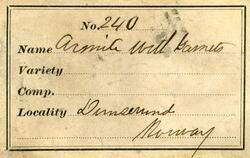 No. 240
Name Acmite with Garnets
Variety
Comp.
Locality
Norway